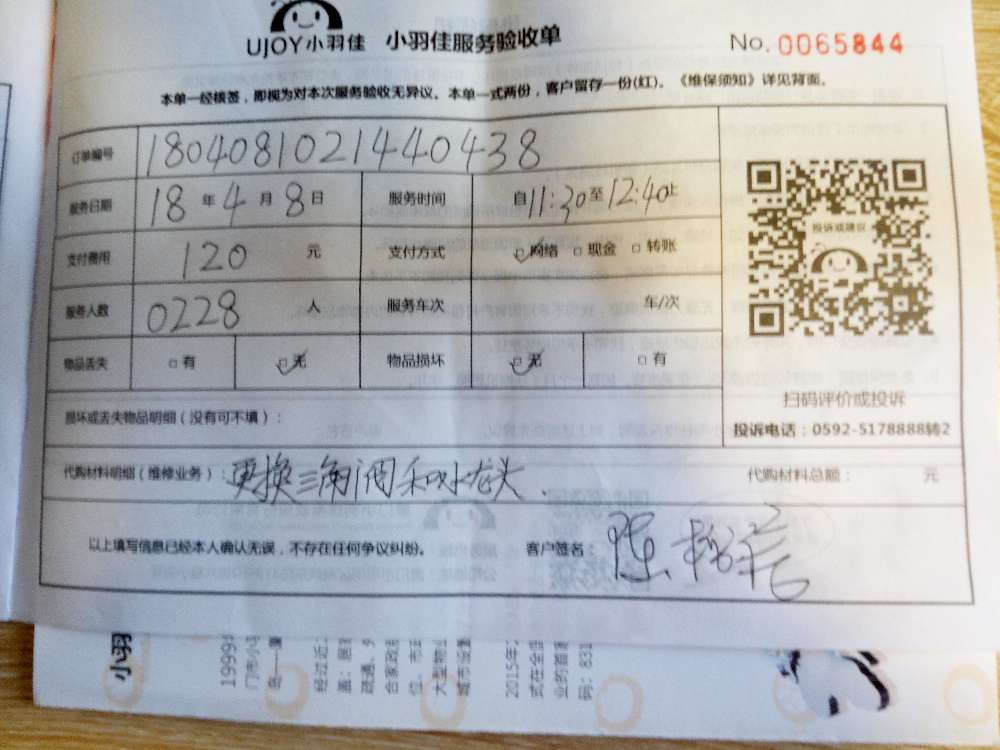 UJOY小羽佳 小羽佳服务验收单 No. 0065844
本单一经核签，即视为对本次服务验收无异议。本单一式两份，客户留存一份(红)。《维保须知》详见背面。
订单编号 1804081021440438
服务日期 18年4月8日 服务时间 自11:30至12:40止
支付费用 120 元 支付方式 □网络 □现金 □转账
服务人数 0228 人 服务车次 车/次
物品丢失 □有 □无 物品损坏 □无 □有
投诉或建议
扫码评价或投诉
投诉电话：0592-5178888转2
损坏或丢失物品明细（没有可不填）：
代购材料明细（维修业务）：更换三角阀和水龙头. 代购材料总额： 元
以上填写信息已经本人确认无误，不存在任何争议纠纷。 客户签名：
小羽
19999
门市小马
经过近
盖：居
疏通、
合家政
位、市
大型物业
城市设置
2015年
式在全
业的首家
码：831